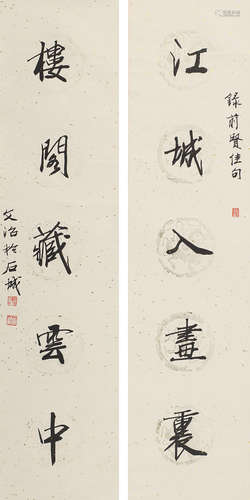 錄前賢佳句
江城入畫裏
樓閣藏雲中
艾治於石城